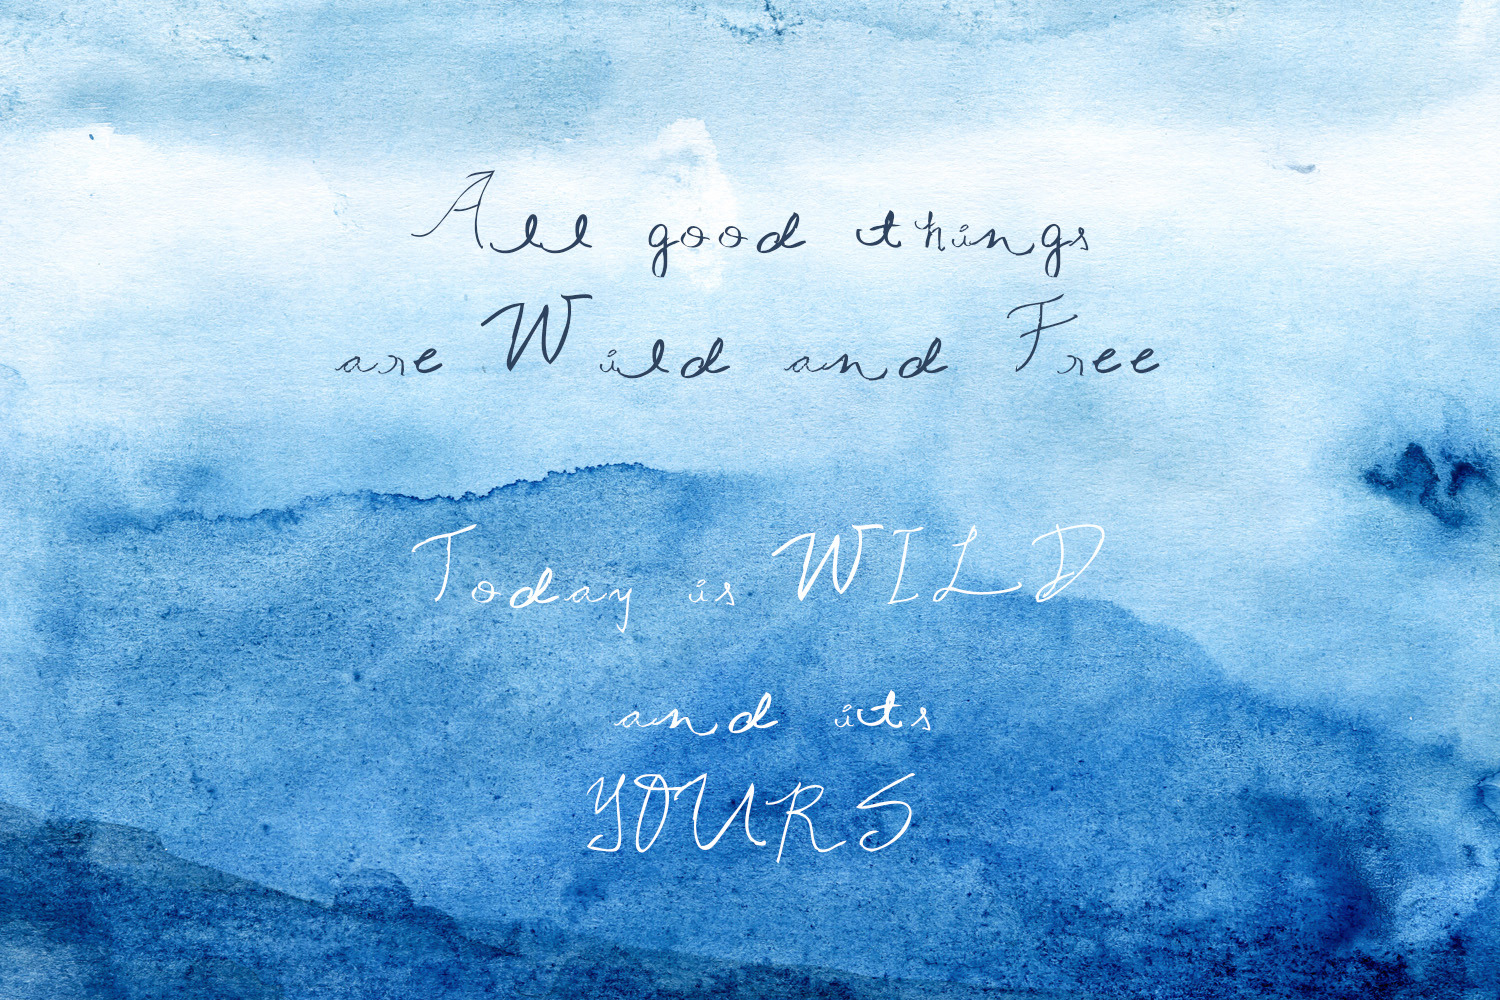 All good things
are Wild and Free
Today is WILD
and its
YOURS